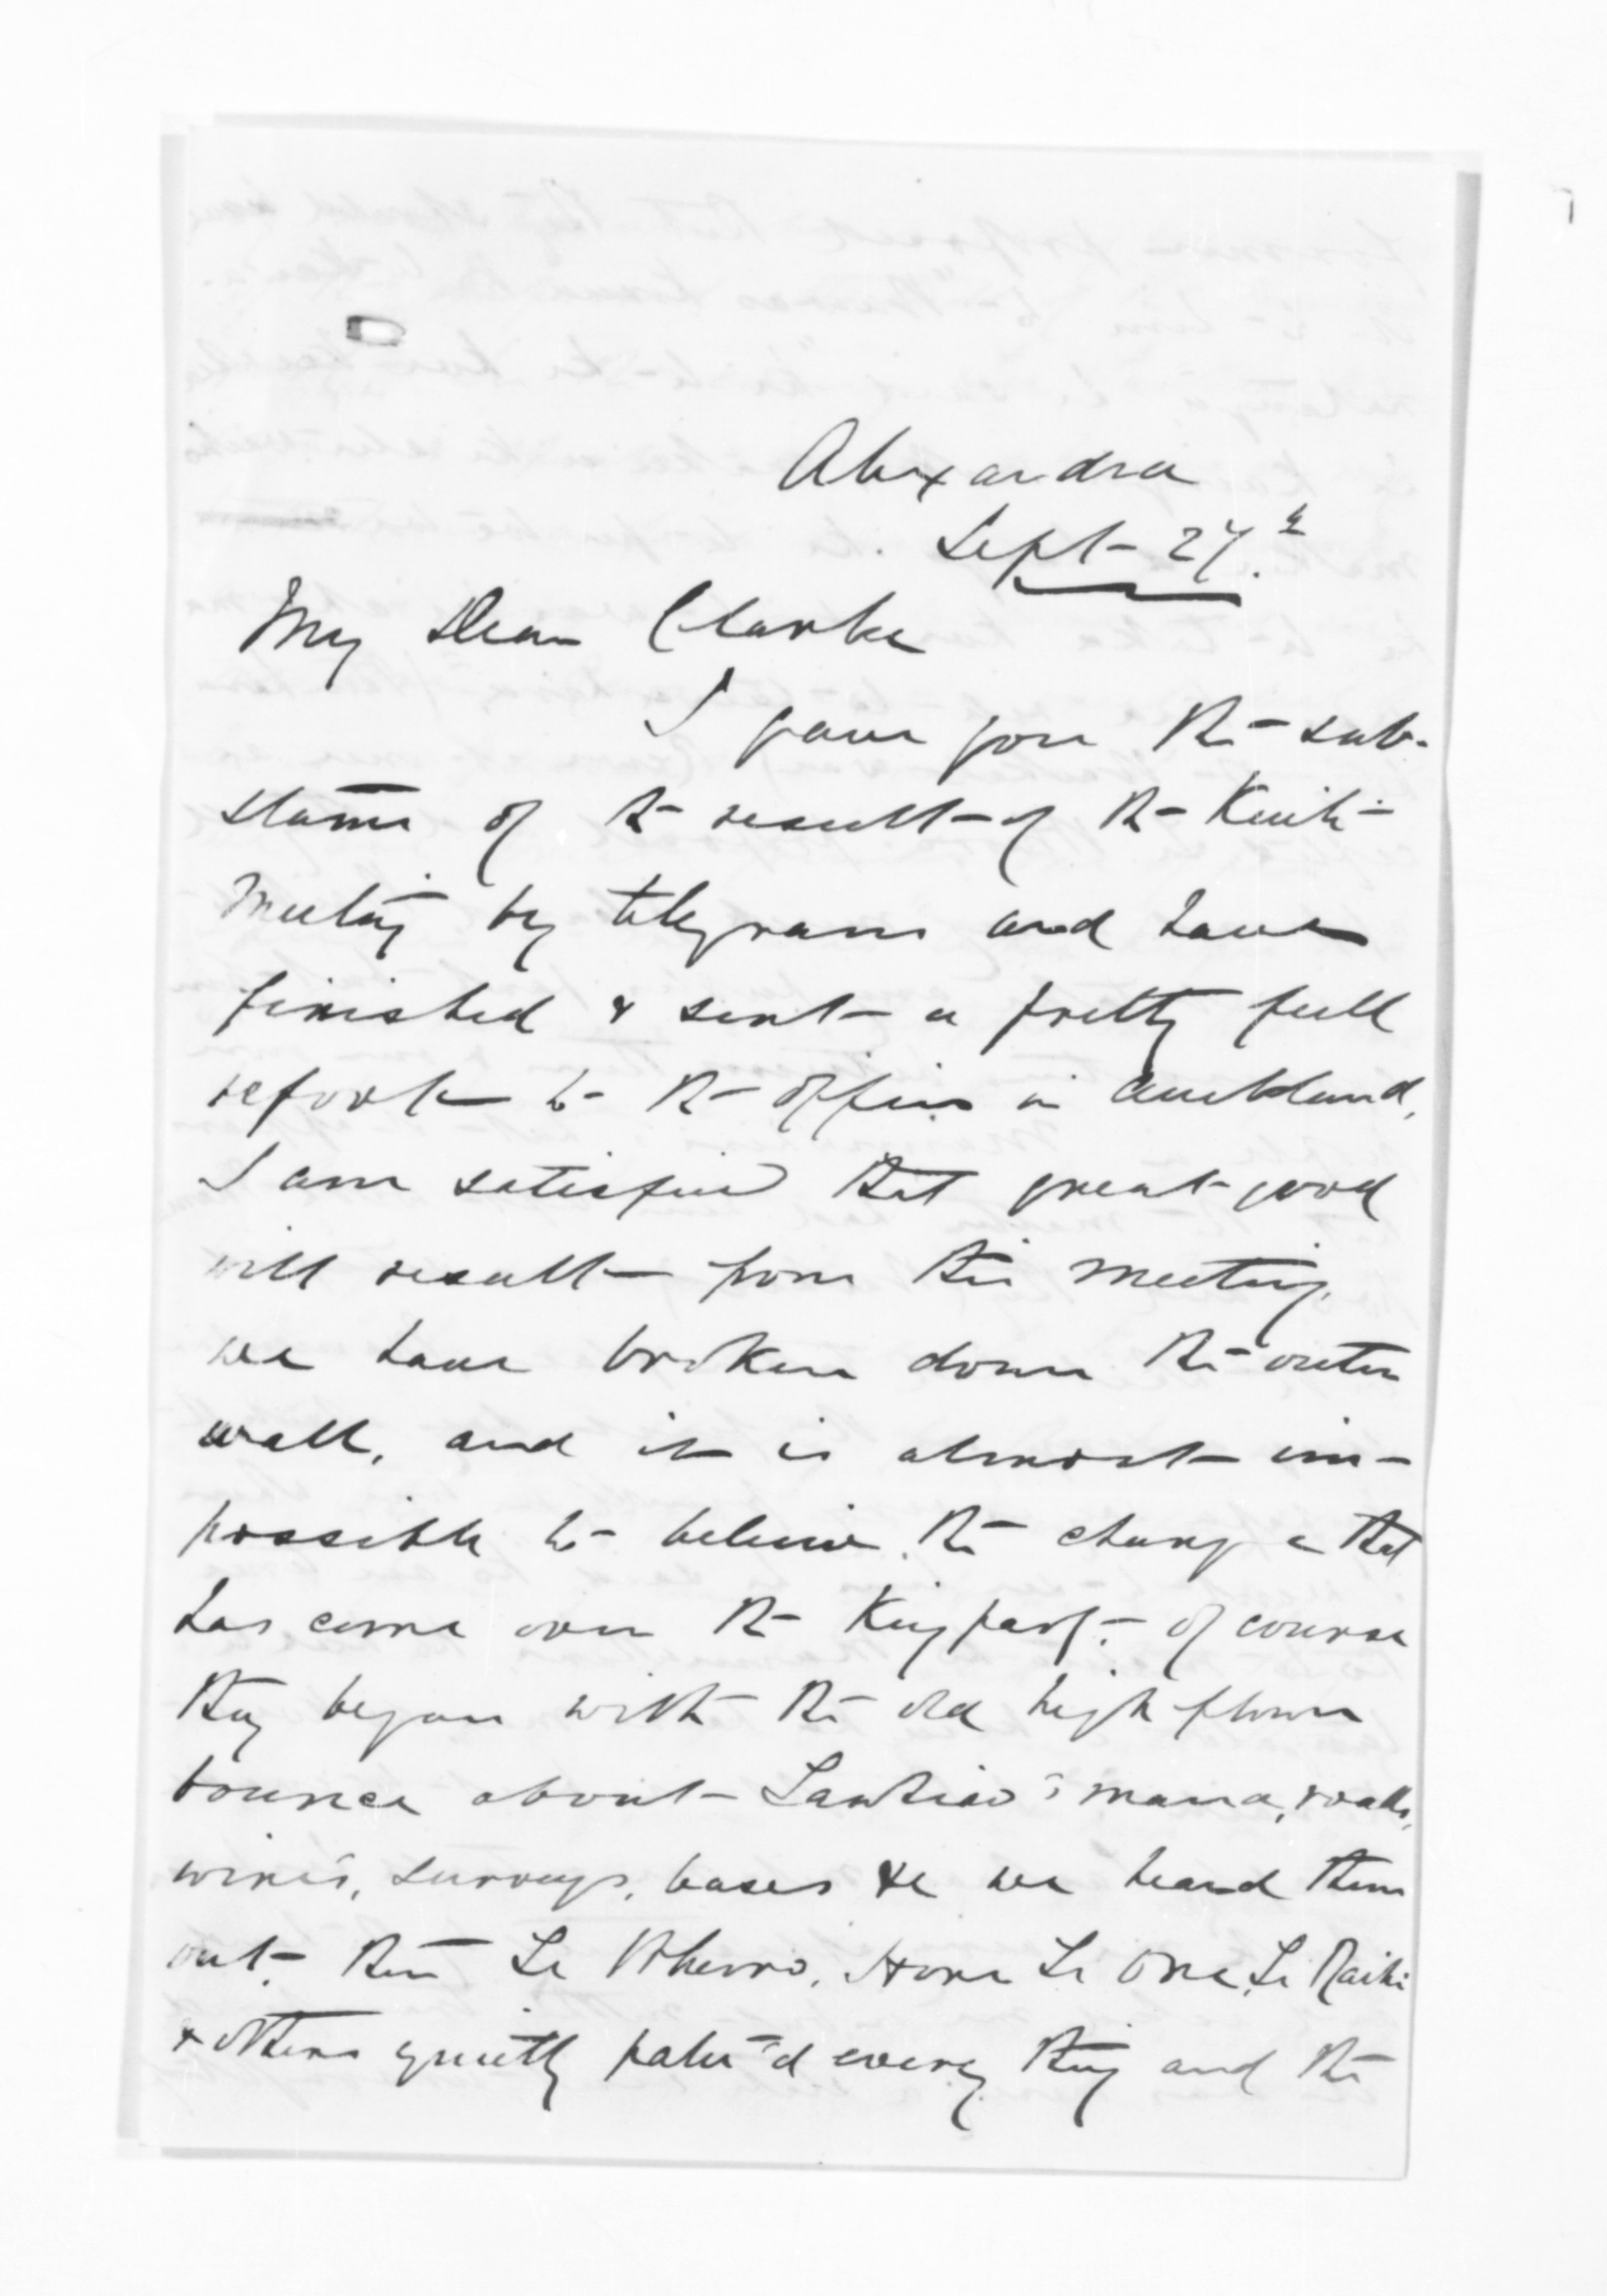 Alexandra
Sept 27th
My Dear Clarke
I gave you the sub-
stance of the result of the Kuiti
Meeting by telegram and have
finished & sent a pretty full
report to the office in Auckland,
I am satisfied that great good
will result from this meeting.
we have broken down the outer
wall, and it is almost im-
possible to believe the change that
has come over the King party. of course
they began with the old high flown
bounce about Tawhiao's mana, roads,
wires, surveys, leases &c we heard them
out. then Te Wheoro, Hone Te One, Te Raihi
& others quietly patu'd every thing and the